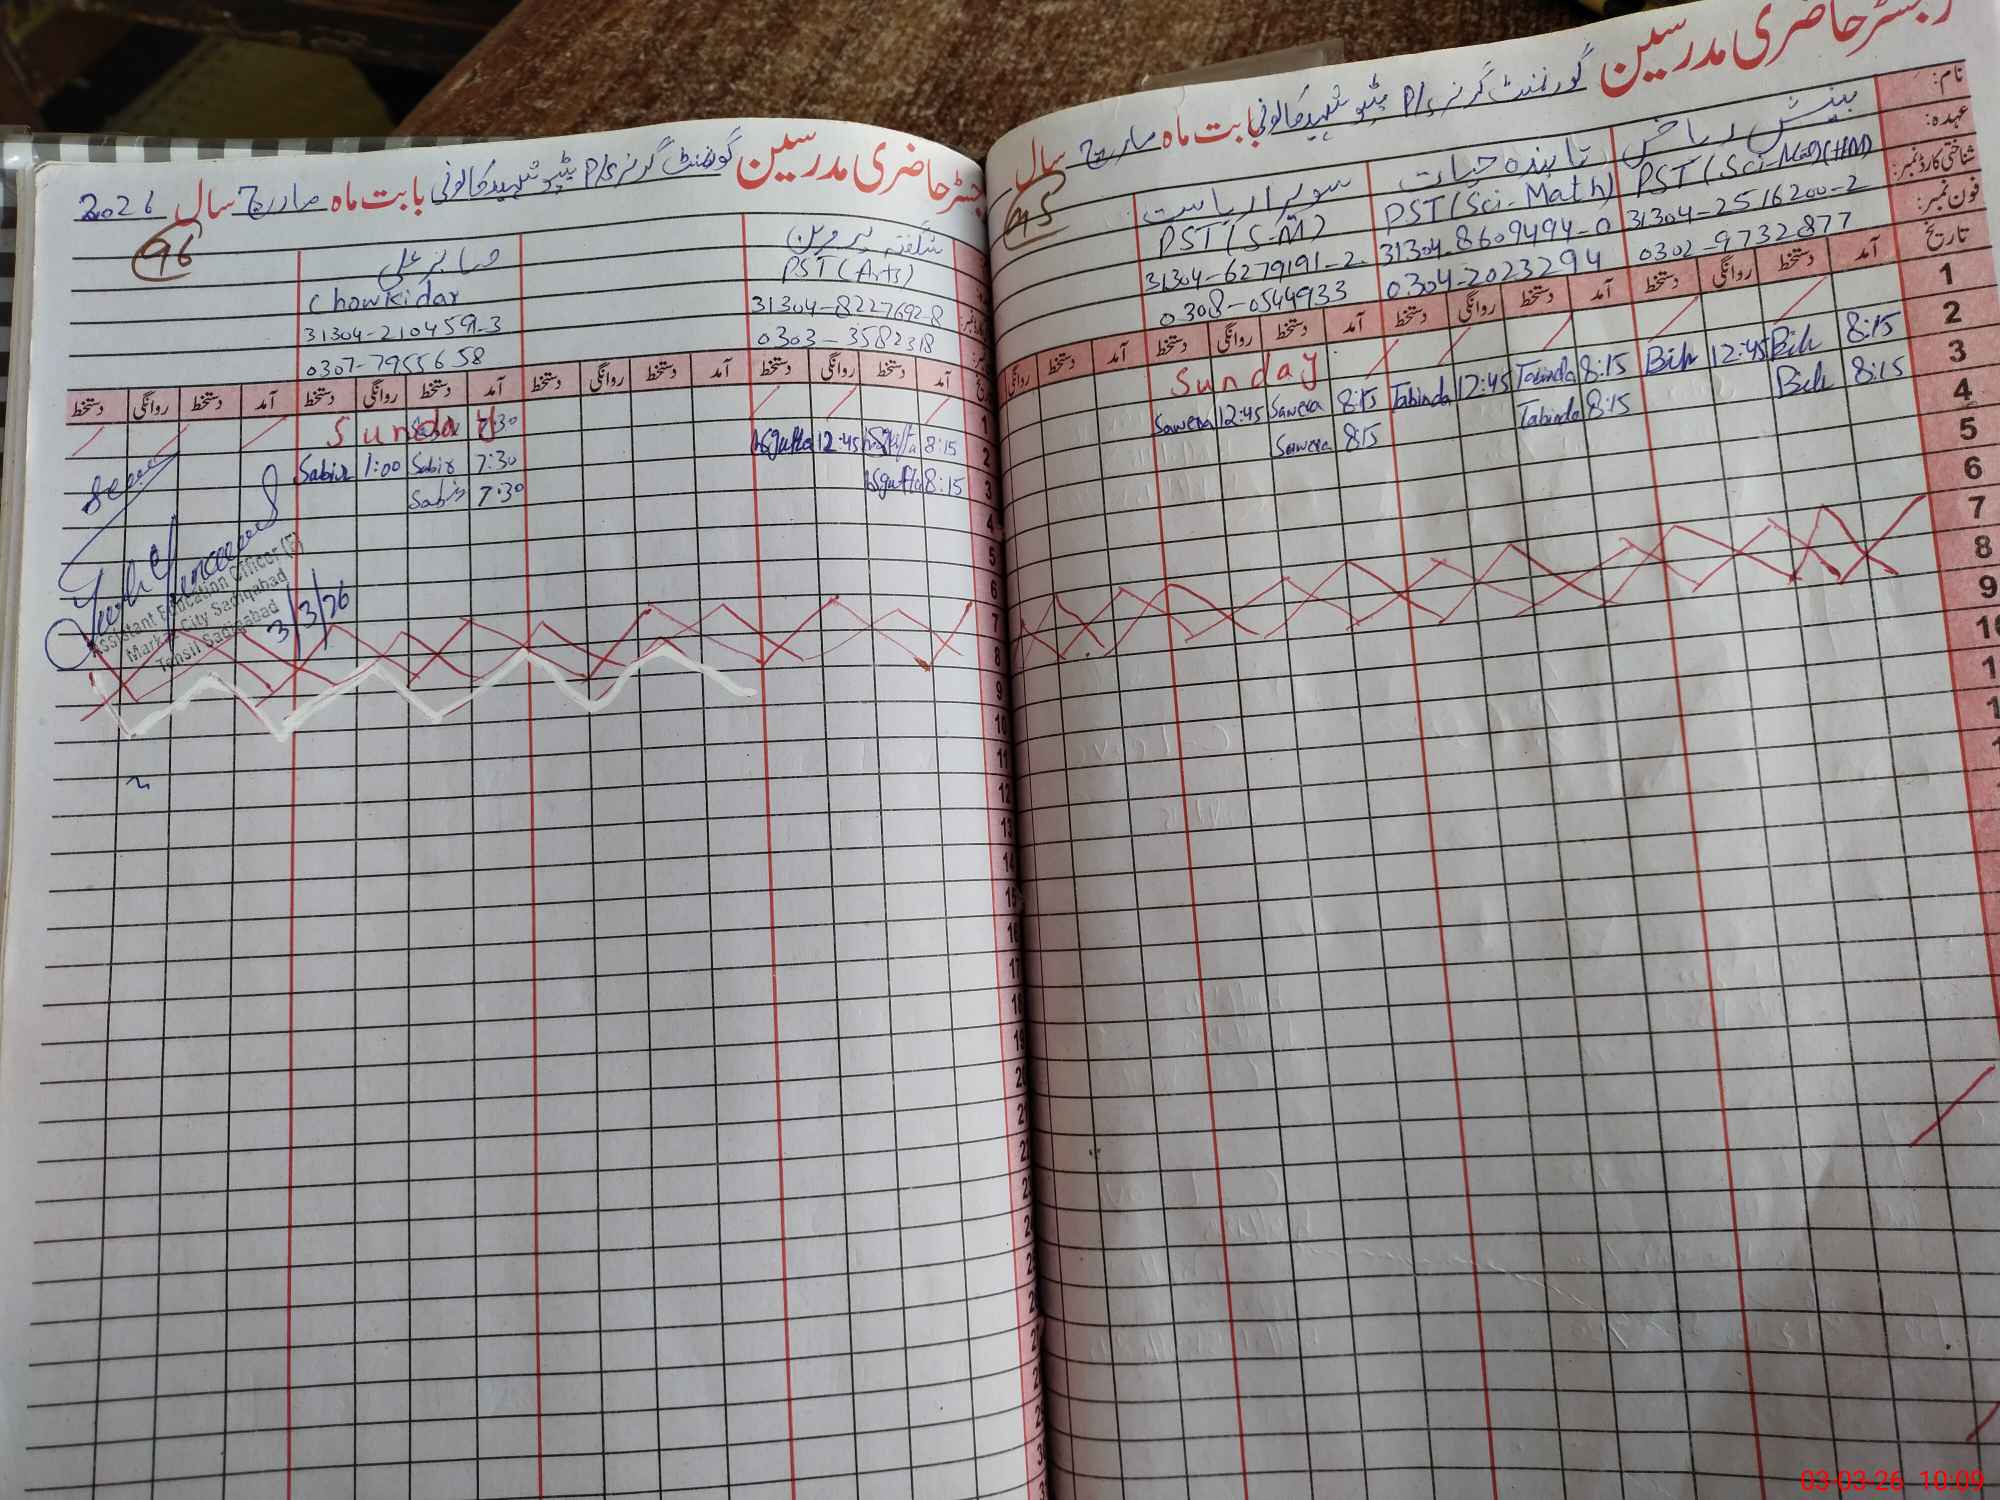 رجسٹر حاضری مدرسین گورنمنٹ گرلز P/s ٹیپو شہید کالونی بابت ماہ مارچ سال
95
نام:
عہدہ:
شناختی کارڈ نمبر:
فون نمبر:
تاریخ
بینش ریاض
PST (Sci-Math) (HM)
31304-2516200-2
0302-9732877
تابندہ حیات
PST (Sci-Math)
31304-8609494-0
0304-2023294
سویرا ریاست
PST (S-M)
31304-6279191-2
0308-0544933
آمد دستخط روانگی دستخط آمد دستخط روانگی دستخط آمد دستخط روانگی دستخط آمد دستخط روانگی
1 Sunday
2 8:15 Bih 12:45 Bih 8:15 Tabinda 12:45 Tabinda 8:15 Sawera 12:45 Sawera
3 8:15 Bih 8:15 Tabinda 8:15 Sawera
4
5
6
7
8
9
10
رجسٹر حاضری مدرسین گورنمنٹ گرلز P/s ٹیپو شہید کالونی بابت ماہ مارچ سال 2026
96
شگفتہ پروین
PST (Arts)
31304-8227692-8
0303-3582318
صابر علی
Chowkidar
31304-210459-3
0307-7955658
آمد دستخط روانگی دستخط آمد دستخط روانگی دستخط آمد دستخط روانگی دستخط آمد دستخط روانگی دستخط
1 Sunday 7:30
2 8:15 12:45 7:30 Sabir 1:00 Sabir
3 8:15 7:30 Sabir
4
5
6
7
8
9
10
11
12
13
14
15
16
17
18
19
Assistant Education Officer (F)
Markaz City Sadiqabad
Tehsil Sadiqabad
3/3/26
03-03-26 10:09